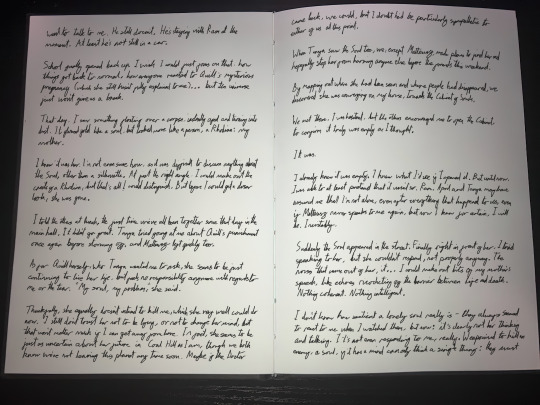 want to talk to me. He still doesn't. He's staying with Ram at the
moment. At least he's not still in a car.
School quietly opened back up. I wish I could just focus on that: how
things got back to normal, how everyone reacted to Quill's mysterious
pregnancy (which she still hasn't fully explained to me)... but the universe
just won't give us a break.
That day, I saw something floating over a corpse,
but. It glowed gold like a soul, but looked more like a person, a Rhodian: my
mother.
I knew it was her. I'm not even sure how, as it was difficult to discern anything about
the Soul, other than a silhouette. At just the right angle, I could make out the
of a Rhodian, but that's all I could distinguish. But before I could get a closer
look, she was gone.
I told the others at lunch, the first time we've all been together since that day in the
main hall. It didn't go great. Tanya tried going at me about Quill's punishment
once again before storming off, and Matteusz
As for Quill herself, who Tanya wanted me to ask, she seems to be just
continuing to live her life, but
me or the others. 'My soul, my problem,' she said.
Thankfully, she equally has no intent to kill me, which she may well could do
now. I still don't trust her not to be lying, or not to change her mind, but
that won't matter much if I can get away from here. In fact, she seems to be
just as uncertain about her future in Coal Hill as I am, though we both
know we're not leaving this planet any time soon. Maybe if the Doctor
came back, we could, but I doubt he'd be particularly sympathetic to
either of us at this point.
When Tanya saw the Soul too, we, except Matteusz, made plans to find her and
hopefully stop her from harming anyone else before the
weekend.
By mapping out where she had been seen and where people had disappeared, we
discovered she was converging on my house, towards the Cabinet of Souls.
We met there. I was hesitant, but the others encouraged me to open the Cabinet
to confirm it truly was empty as I thought.
It was.
I already knew it was empty. I knew what I'd see if I opened it. But until now
I was able to at least pretend that it wasn't so. Ram, April and Tanya may have
assured me that I'm not alone, even after everything that happened to us, even
if Matteusz never speaks to me again, but now I know for certain, I will
be. Inevitably.
Suddenly the Soul appeared in the street. Finally right in front of her. I tried
speaking to her, but she couldn't respond, not properly anyway. The
noises that came out of her, it... I could make out bits of my mother's
speech, like echoes ricocheting off the barrier between life and death.
Nothing coherent. Nothing intelligent.
I don't know how sentient a lonely soul really is - they always seemed
to react to me when I watched them, but now: it's clearly not her thinking
and talking. It's not even responding to me, really. Weaponised to kill an
enemy, a soul, if it has a mind can only think a single thing: they must